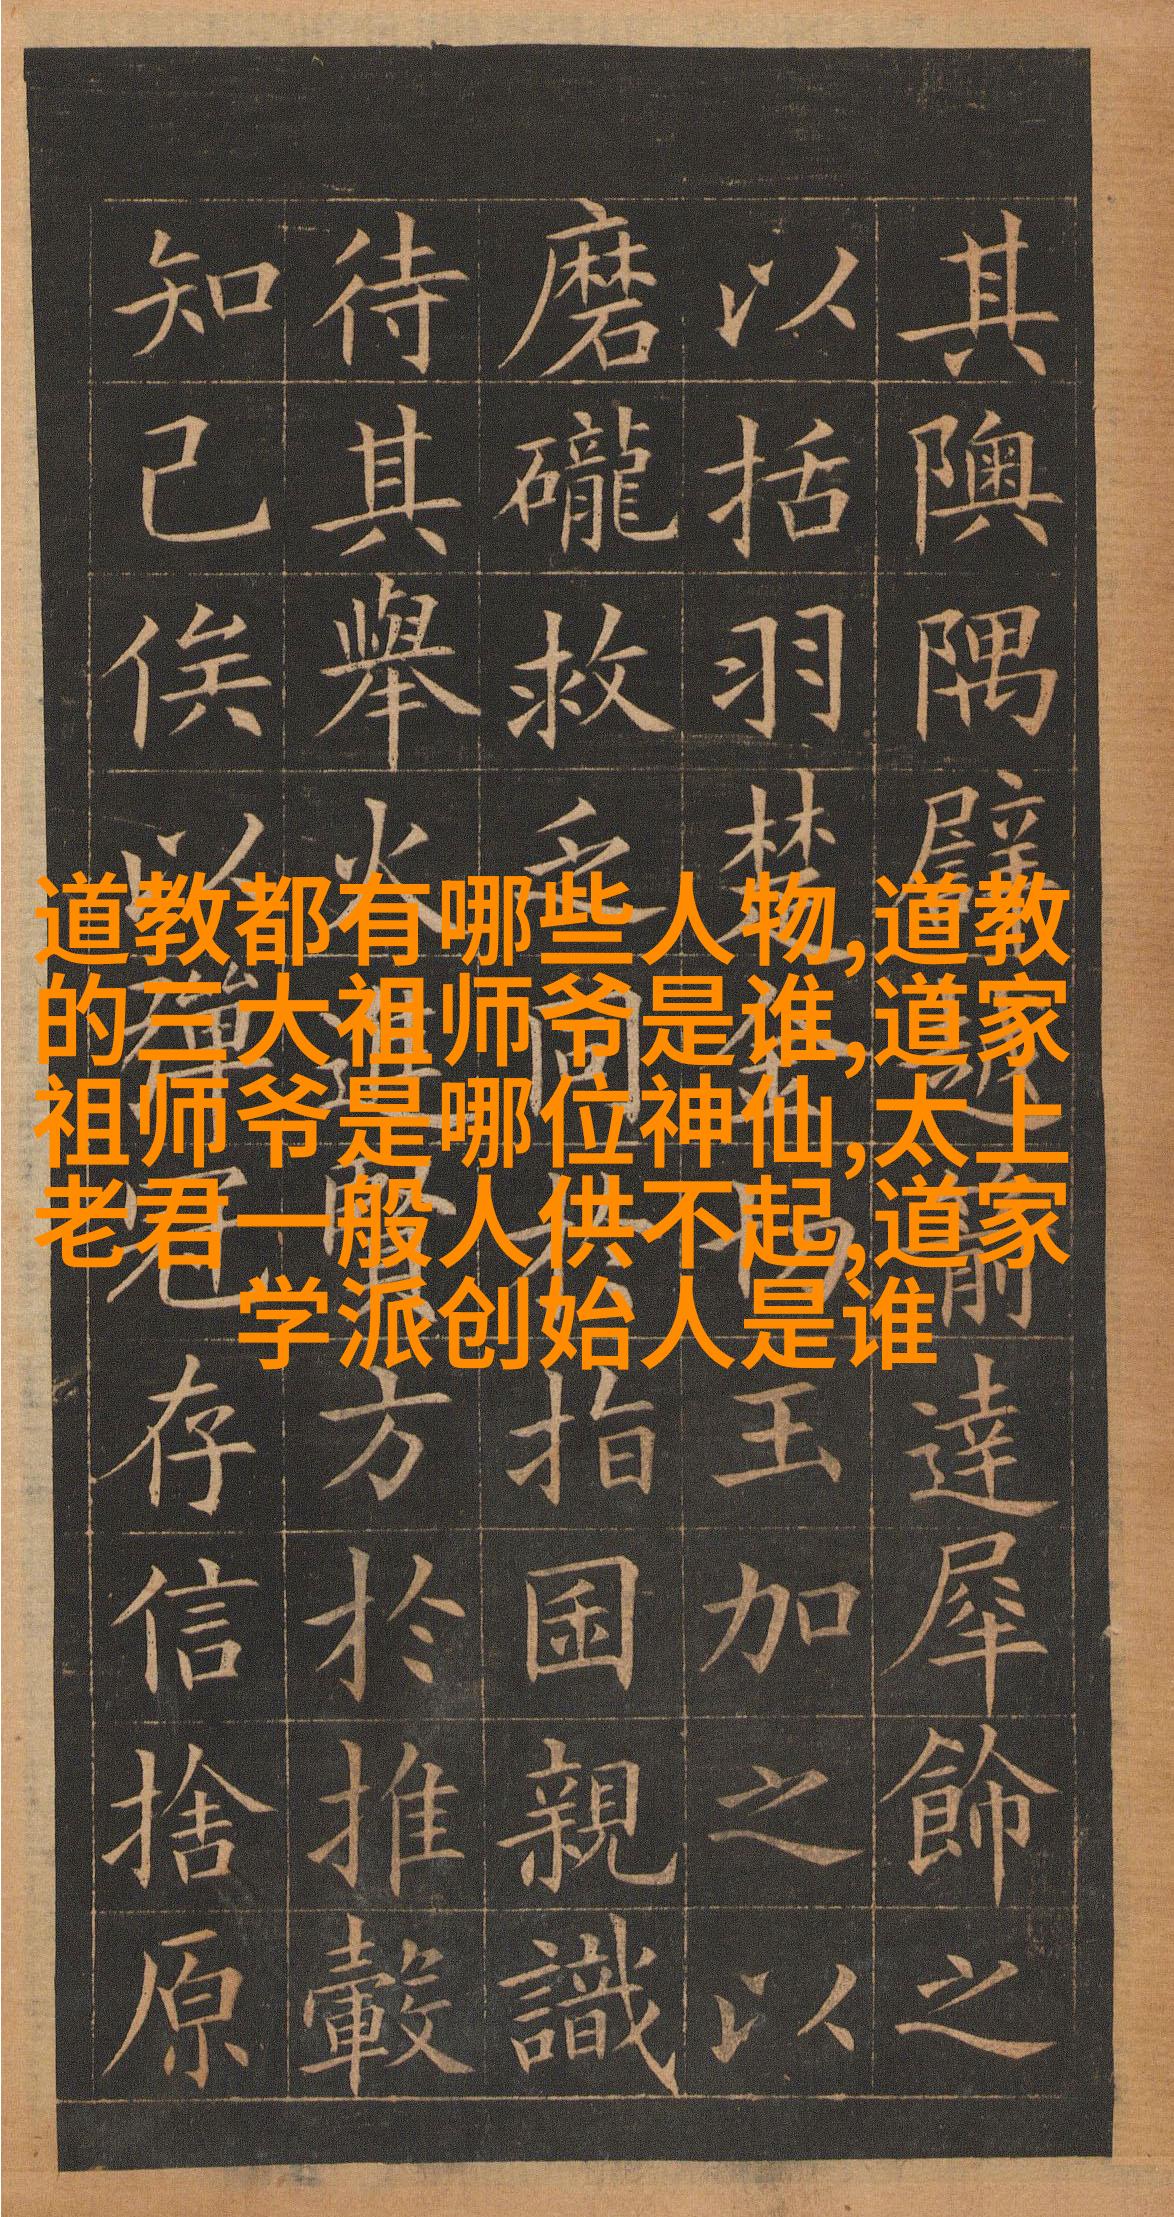 其隩隅譬越箭達犀飾之
以括羽楚金切玉加之以
磨礲救乏同於指囷親識
待其舉火進賢方於推轂
知己俟以彈冠存信捨原
道教都有哪些人物,道教
的三大祖师爷是谁,道家
祖师爷是哪位神仙,太上
老君一般人供不起,道家
学派创始人是谁